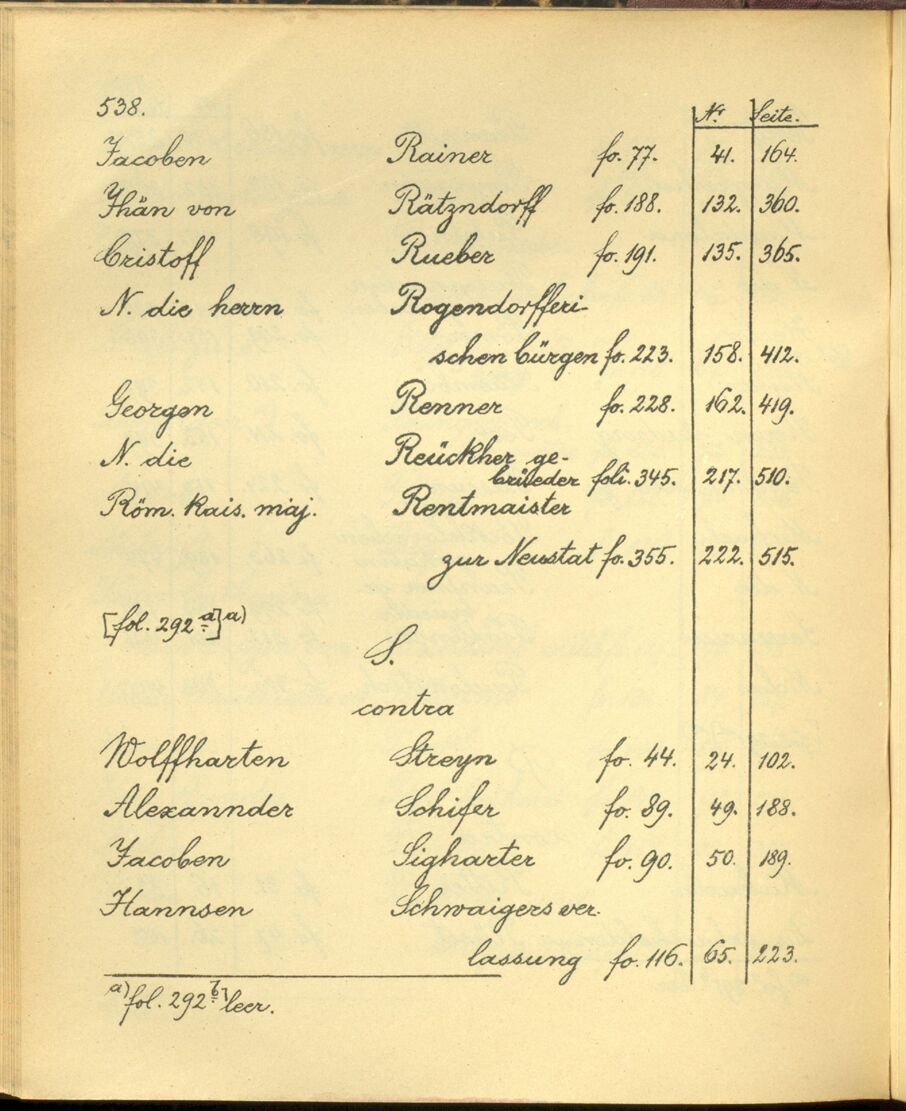 538. Nr. Seite.
Jacoben Rainer fo. 77. 41. 164.
Jhän von Rätzndorff fo. 188. 132. 360.
Cristoff Rueber fo. 191. 135. 365.
N. die herrn Rogendorfferi-
schen bürgen fo. 223. 158. 412.
Georgen Renner fo. 228. 162. 419.
N. die Reückher ge-
brüeder foli. 345. 217. 510.
Röm. Kais. maj. Rentmaister
zur Neustat fo. 355. 222. 515.
[fol. 292 a] a)
S.
contra
Wolffharten Streyn fo. 44. 24. 102.
Alexannder Schifer fo. 89. 49. 188.
Jacoben Sigharter fo. 90. 50. 189.
Hannsen Schwaigers ver-
lassung fo. 116. 65. 223.
a) fol. 292 b] leer.